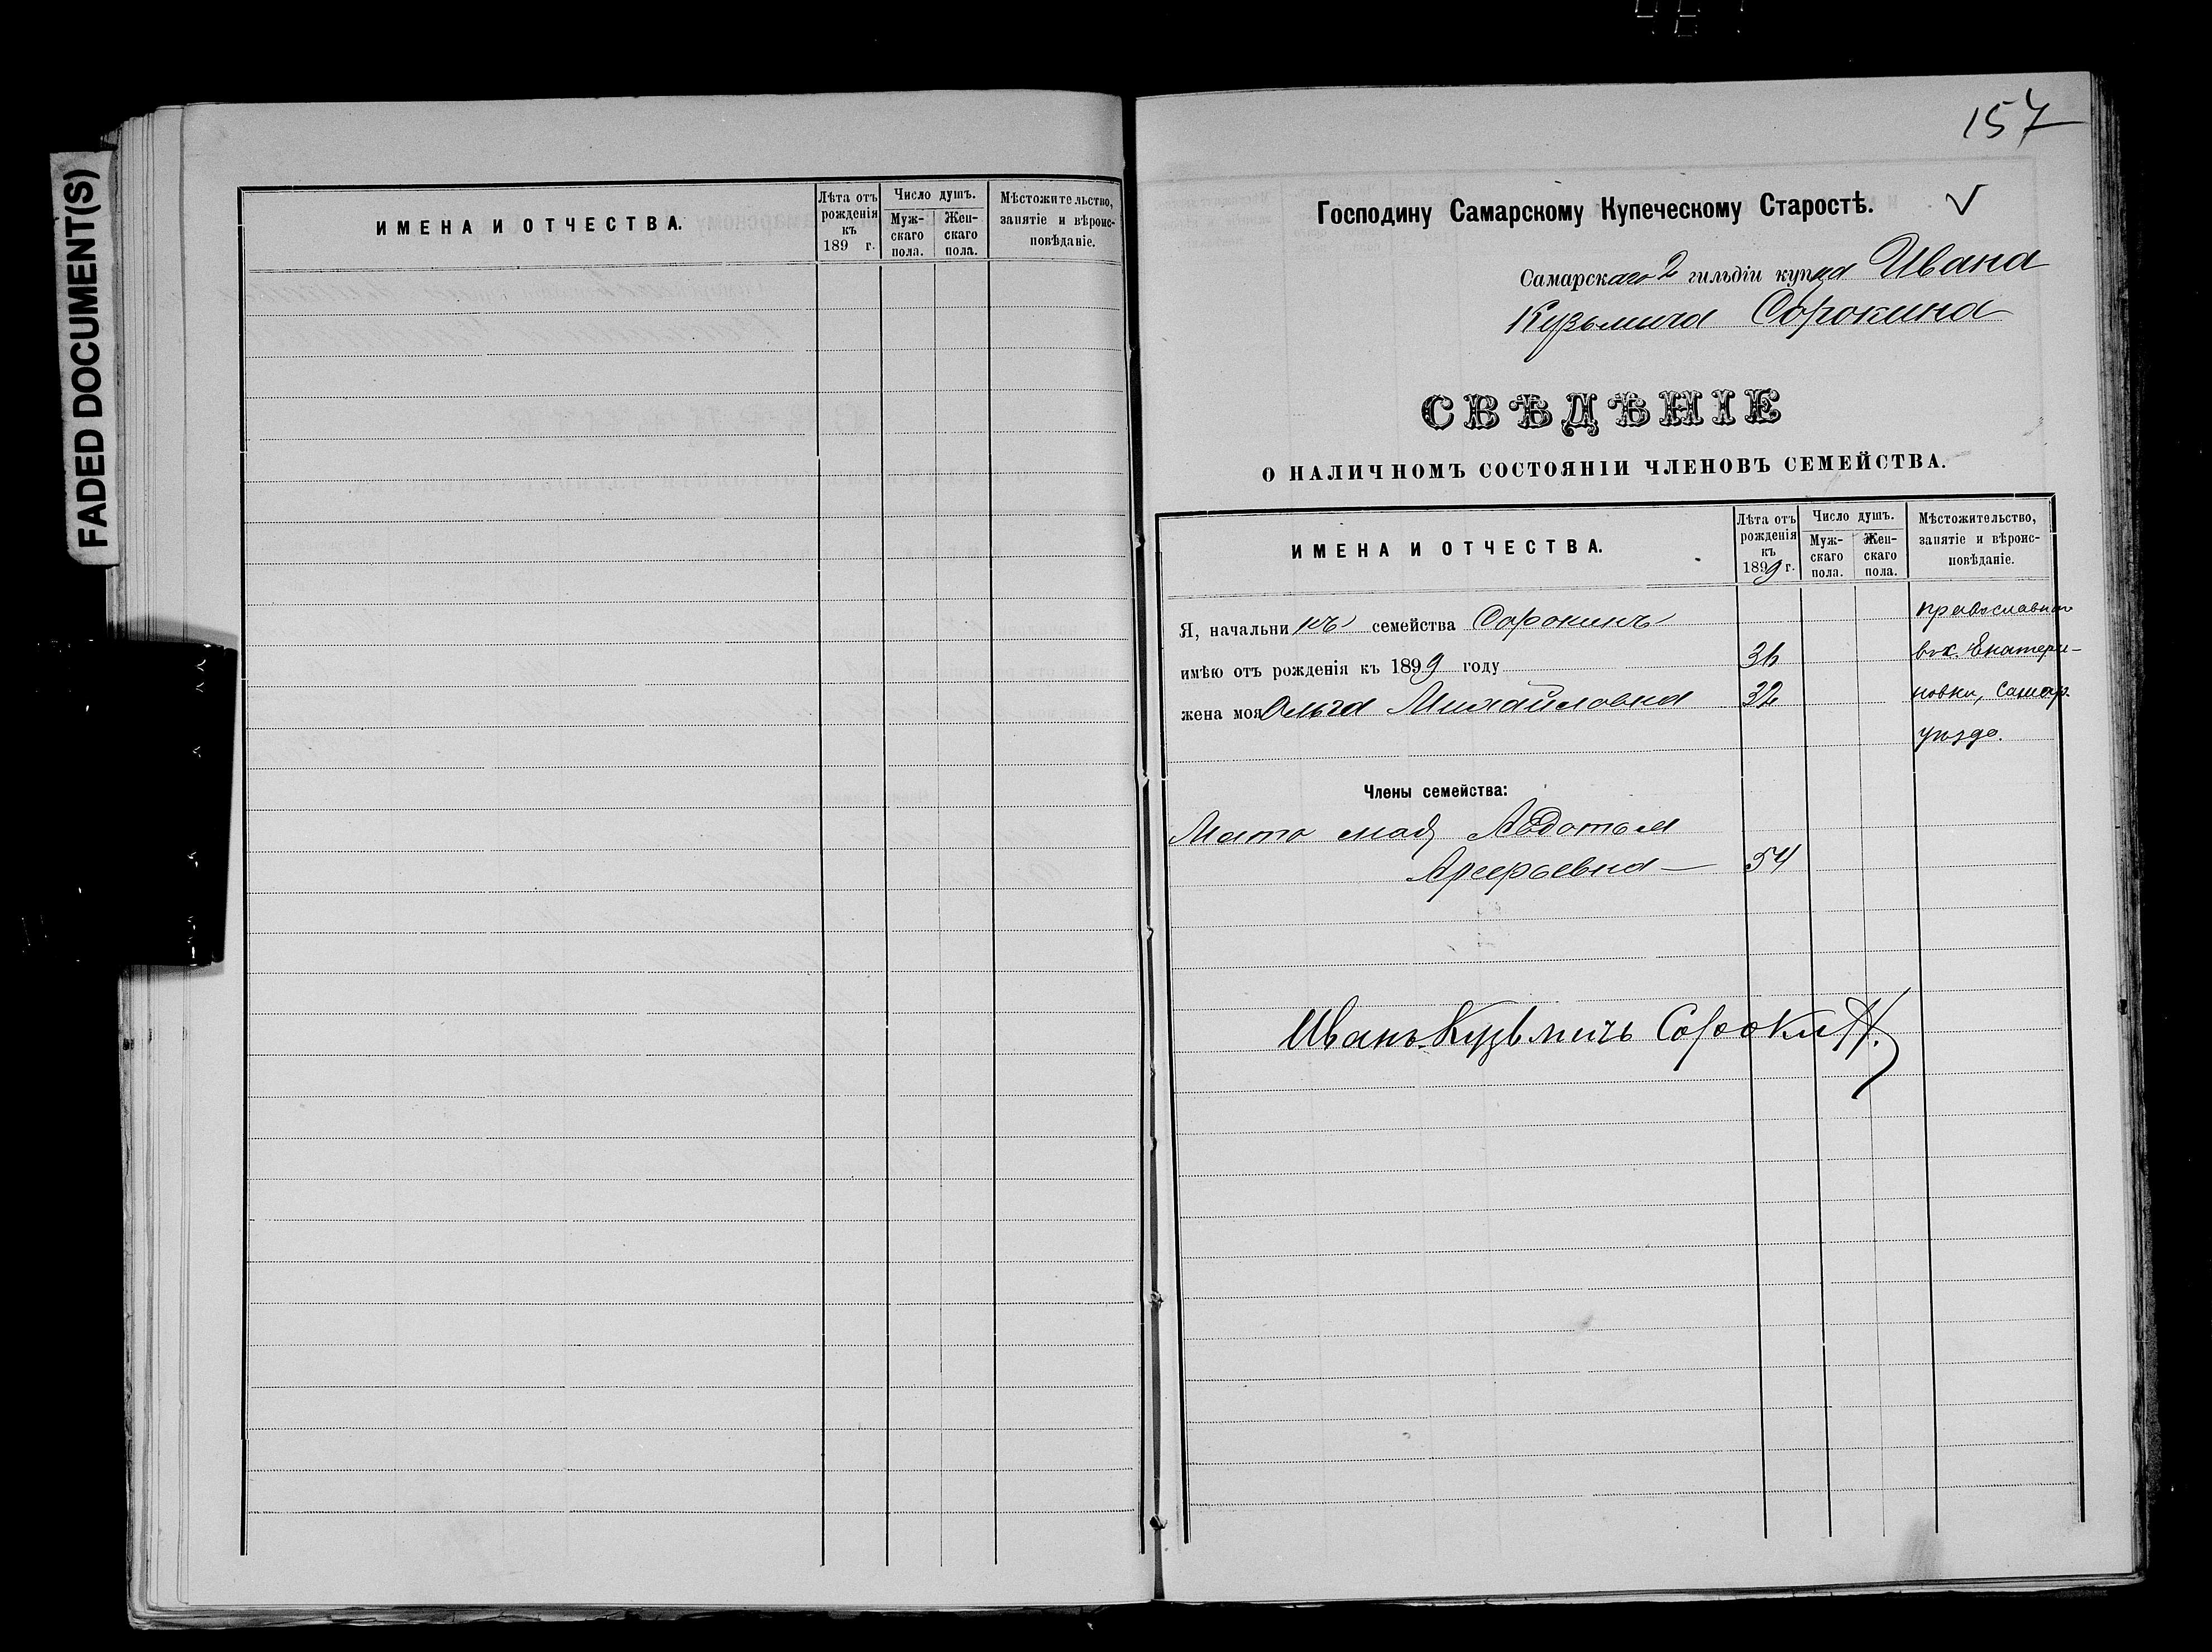 FADED DOCUMENT(S)
ИМЕНА И ОТЧЕСТВА.
Лѣта отъ рожденія къ 189 г.
Число душъ.
Муж-скаго пола.
Жен-скаго пола.
Мѣстожительство, занятіе и вѣроис-повѣданіе.
157
Господину Самарскому Купеческому Старостѣ.
Самарскаго 2 гильдіи купца Ивана
Кузьмича Сорокина
СВѢДѢНІЕ
О НАЛИЧНОМЪ СОСТОЯНІИ ЧЛЕНОВЪ СЕМЕЙСТВА.
ИМЕНА И ОТЧЕСТВА.
Лѣта отъ рожденія къ 1899 г.
Число душъ.
Муж-скаго пола.
Жен-скаго пола.
Мѣстожительство, занятіе и вѣроис-повѣданіе.
Я, начальникъ семейства Сорокинъ
имѣю отъ рожденія къ 1899 году 36 Екатери-
жена моя Ольга Михайловна 32 новки, Самар.
уѣзда.
Члены семейства:
Мать моя Авдотья
54
Иванъ Кузьмичъ Сорокин.